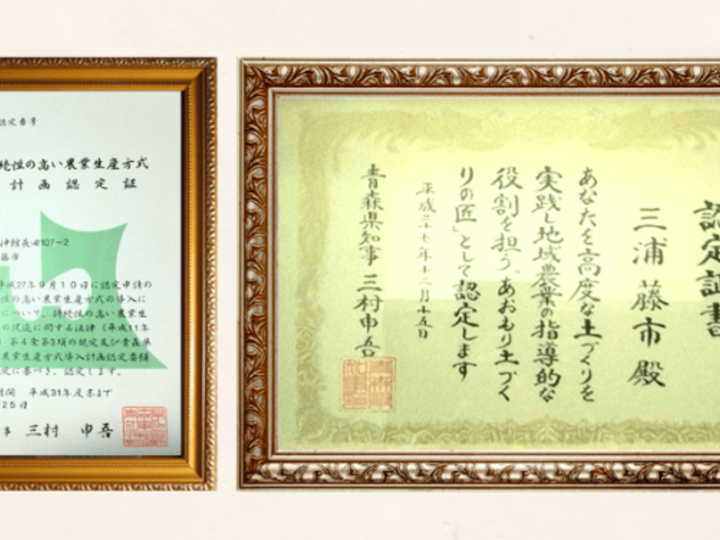 認定番号
続性の高い農業生産方式
計画認定証
沖館長田107-2
藤市
平成27年9月10日に認定申請の
性の高い農業生産方式の導入に
について、持続性の高い農業生
の促進に関する法律(平成11年
第4条第3項の規定及び青森県
農業生産方式導入計画認定要領
定に基づき、認定します。
期間 平成31年度末まで
25日
事 三村 申吾
認定証書
三浦藤市殿
あなたを高度な土づくりを
実践し地域農業の指導的な
役割を担う「あおもり土づく
りの匠」として認定します
平成二十七年十二月十五日
青森県知事 三村申吾